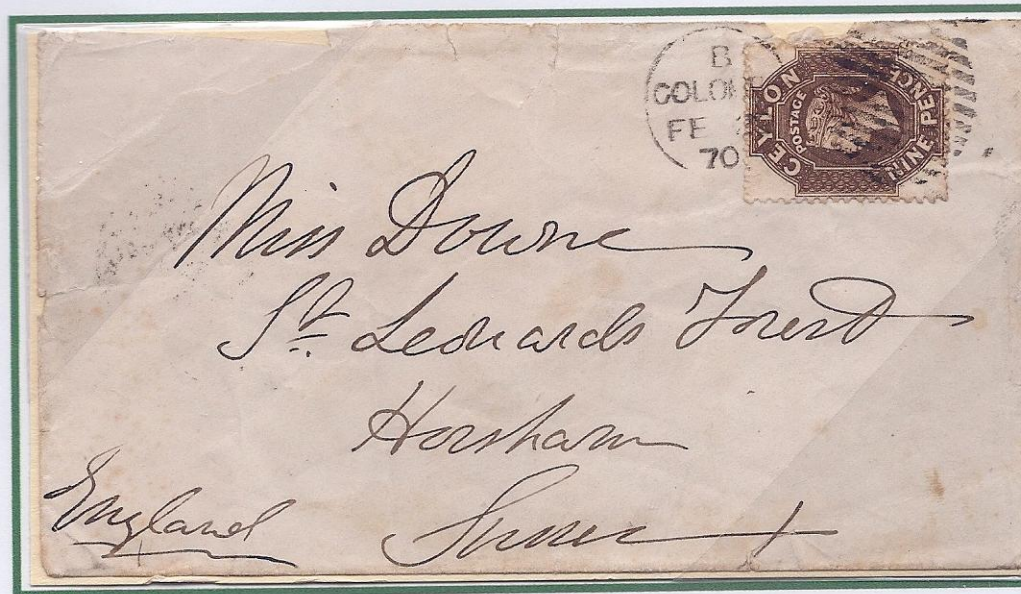 B
COLOMB
FE
70
CEYLON
POSTAGE
NINE PENCE
Miss Downe
St. Leonards Forest
Horsham
Sussex
England